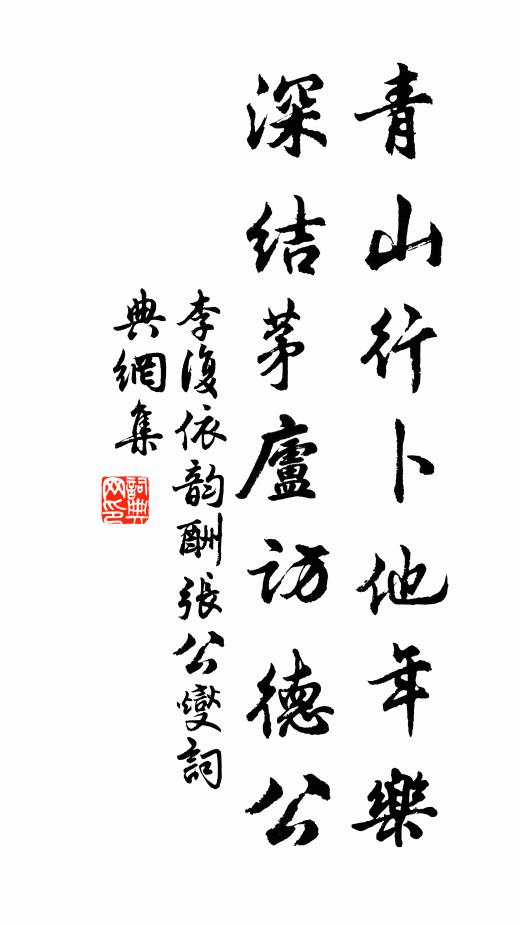 青山行卜他年樂
深結茅廬訪德公
李復依韵酬張公燮詞
典網集
詞典網印